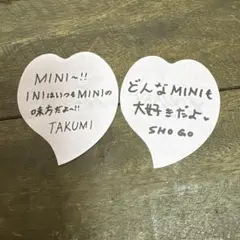 MINI〜!!
INIはいつもMINIの
味方だよ〜!!
TAKUMI
どんなMINIも
大好きだよ♥
SHOGO